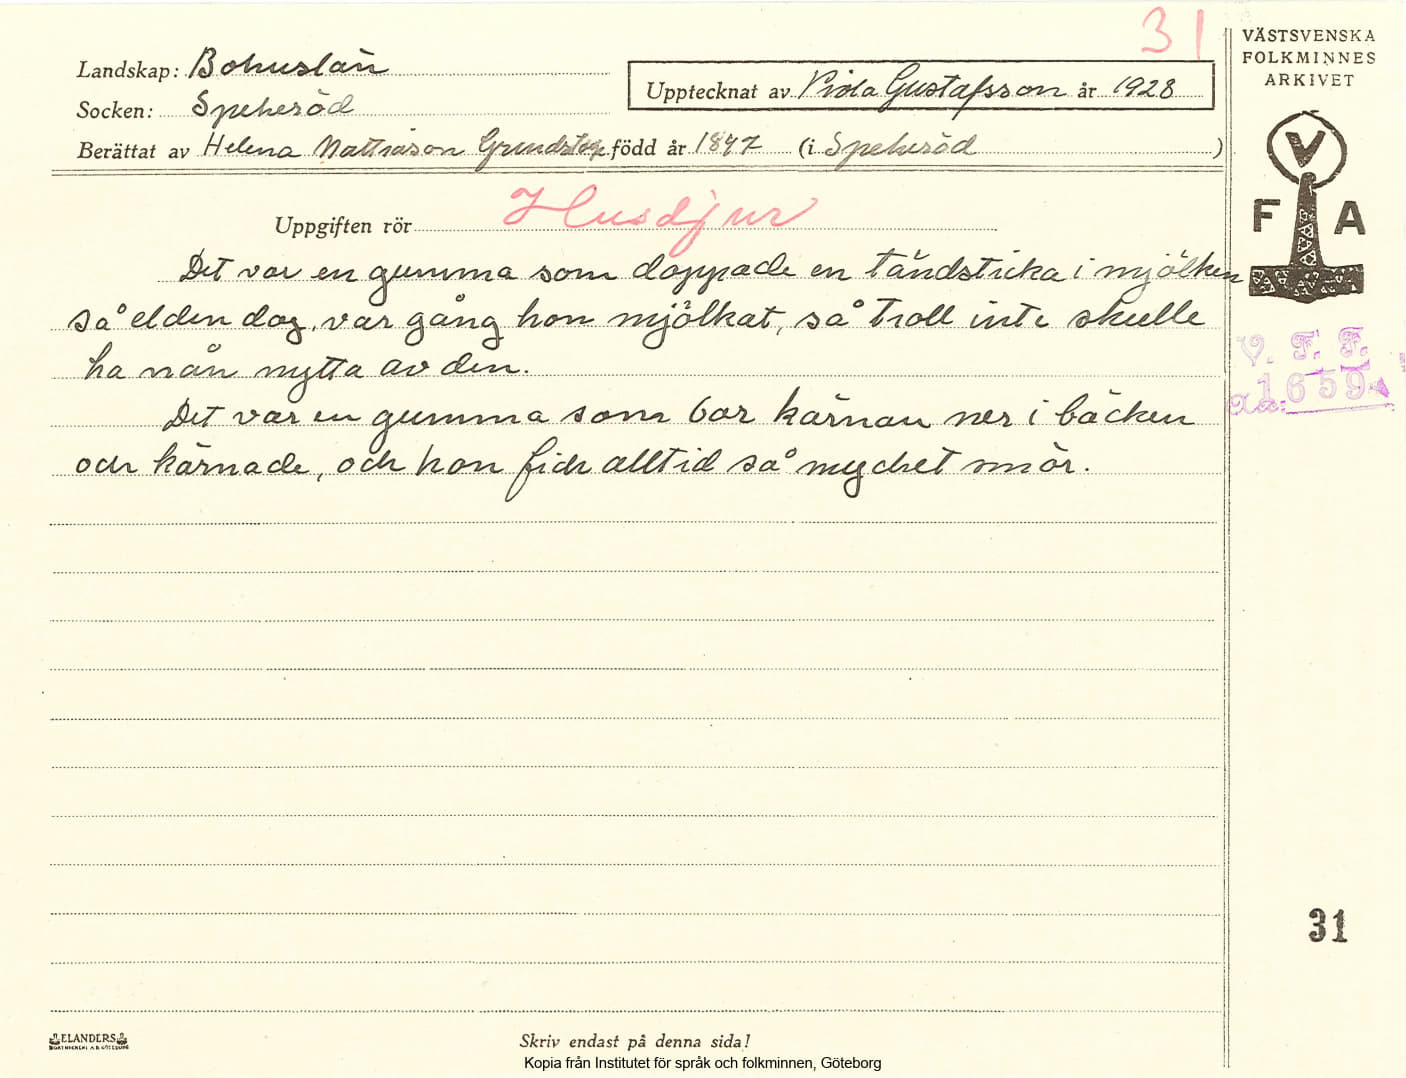 31
VÄSTSVENSKA
FOLKMINNES
ARKIVET
Landskap: Bohuslän
Upptecknat av Viola Gustafsson år 1928
Socken: Spekeröd
Berättat av Helena Mattiason född år 1847 (i Spekeröd)
V
F A
Uppgiften rör Husdjur
Det var en gumma som doppade en tändsticka i mjölken
så elden dog, var gång hon mjölkat, så troll inte skulle
ha nån nytta av den.
Det var en gumma som bar kärnan ner i bäcken
och kärnade, och hon fick alltid så mycket smör.
V. F. F.
1659
31
ELANDERS
Skriv endast på denna sida!
Kopia från Institutet för språk och folkminnen, Göteborg